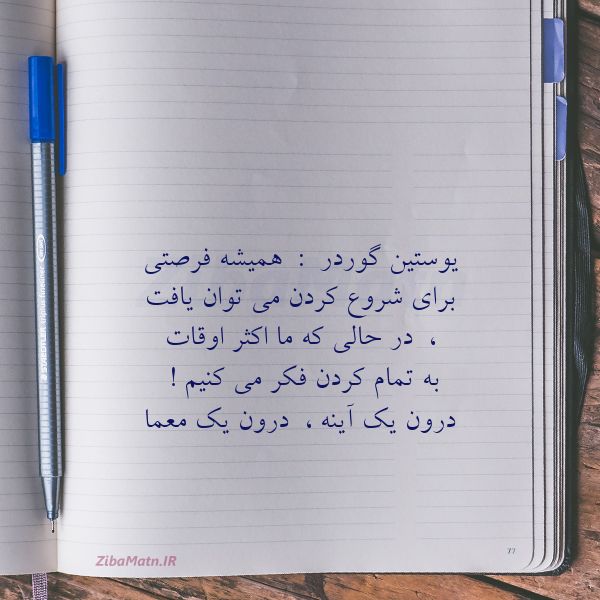 یوستین گوردر : همیشه فرصتی
برای شروع کردن می توان یافت
، در حالی که ما اکثر اوقات
به تمام کردن فکر می کنیم !
درون یک آینه ، درون یک معما
ZibaMatn.IR
77
STAEDTLER triplus fineliner